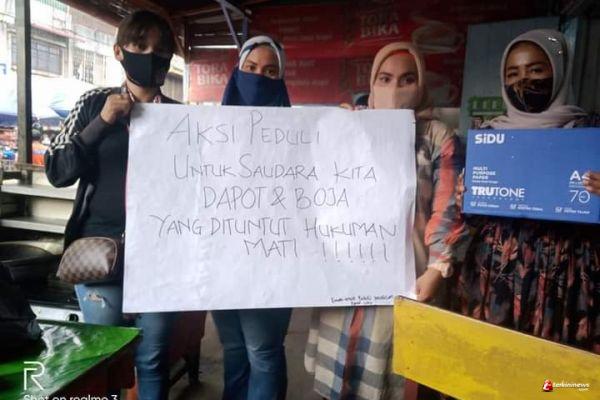 TORA
BIKA
TORA
BIKA
AKSI PEDULI
UNTUK SAUDARA KITA
DAPOT & BOJA
YANG DITUNTUT HUKUMAN
MATI !!!!!!
SiDU
MULTI
PURPOSE
PAPER
TRUTONE
A4
70
R
Shot on realme 3
terkininews